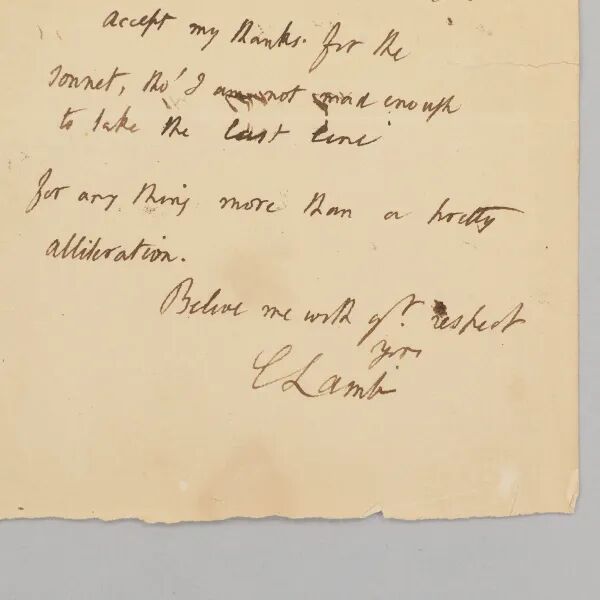 Accept my thanks for the
sonnet, tho' I am not mad enough
to take the last line
for any thing more than a pretty
alliteration.
Believe me with gt. respect
yors
C Lamb